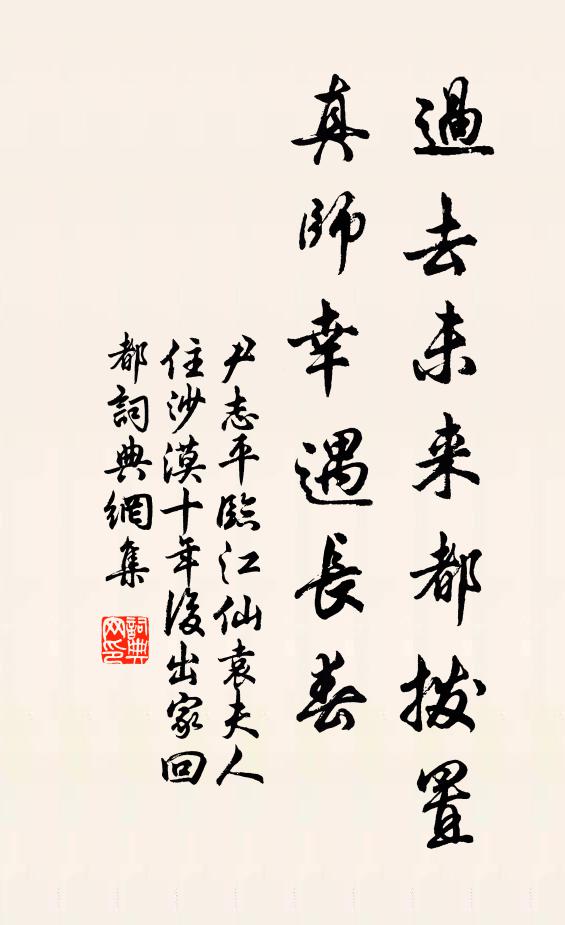 過去未来都拨置
真師幸遇長春
尹志平臨江仙袁夫人
住沙漠十年後出家回
都詞典網集
詞典网印